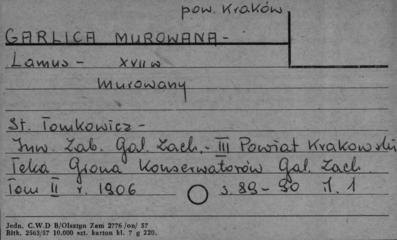 pow. Kraków
GARLICA MUROWANA -
Lamus - XVII w
murowany
St. Tomkowicz -
Inw. Zab. Gal. Zach. - III Powiat Krakowski
Teka Grona Konserwatorów Gal. Zach.
Tom II r. 1906 s. 89-90 il. 1
Jedn. C.W.D B/Olsztyn Zam 2776 /on/ 57
Błtk. 2563/57 10.000 szt. karton kl. 7 g 220.